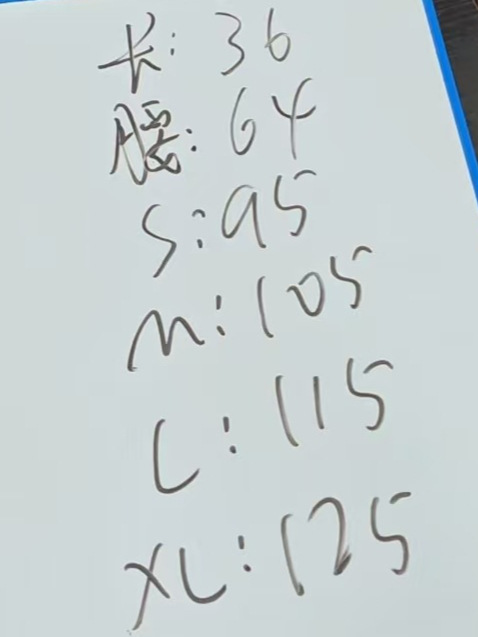 长: 36
腰: 64
S: 95
M: 105
L: 115
XL: 125